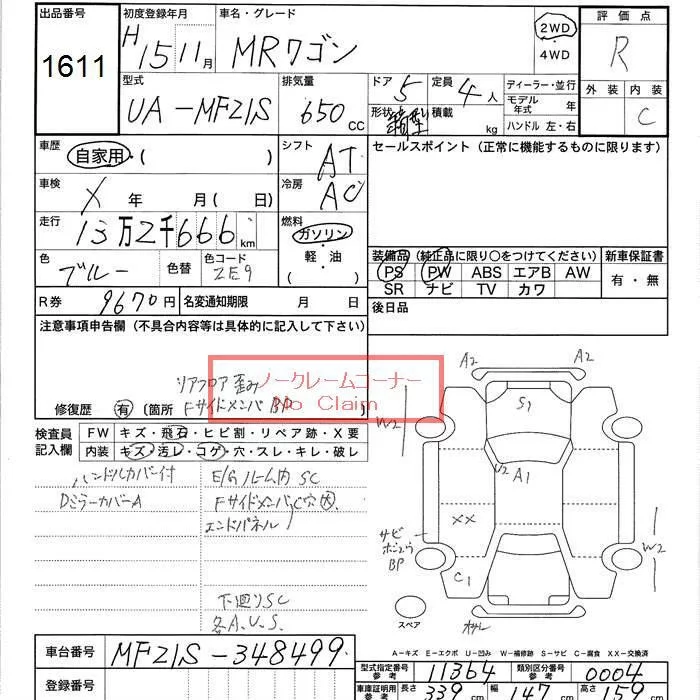 出品番号 初度登録年月 車名・グレード 評価点
1611 H15 11月 MRワゴン 2WD ・ 4WD R
型式 排気量 ドア 定員 ディーラー・並行 外装 内装
UA-MF21S 650 CC 5 4人 モデル年式 年 C
形状 箱型 積載 kg ハンドル 左・右
車歴 自家用・( ) シフト AT セールスポイント(正常に機能するものに限ります)
車検 X 年 月(日) 冷房 AC
走行 13万2千666 km 燃料 ガソリン・軽・油 ( )
色 ブルー 色替 色コード ZE9
装備品(純正品に限り○をつけてください) 新車保証書
PS PW ABS エアB AW 有・無
SR ナビ TV カワ
R券 9670円 名変通知期限 月 日 後日品
注意事項申告欄(不具合内容等は具体的に記入して下さい)
リアフロア歪み
ノークレームコーナー
No Claim
修復歴 有(箇所 Fサイドメンバ BP )
検査員記入欄 FW キズ・飛石・ヒビ割・リペア跡・X要
内装 キズ・汚レ・コゲ・穴・スレ・キレ・破レ
ハンドルカバー付 E/Gルーム内 SC
DミラーカバーA Fサイドメンバ C穴大
エンドパネル
下廻りSC
各A.U.S.
A2 A2
S1
W2
U2 A1
XX
サビ
BP
W2
C1
スペア
A-キズ E-エクボ U-凹み W-補修跡 S-サビ C-腐食 XX-交換済
車台番号 MF21S-348499
登録番号
型式指定番号 参考 11364 類別区分番号 参考 0004
車庫証明用 参考 長さ 339 cm 幅 147 cm 高さ 159 cm